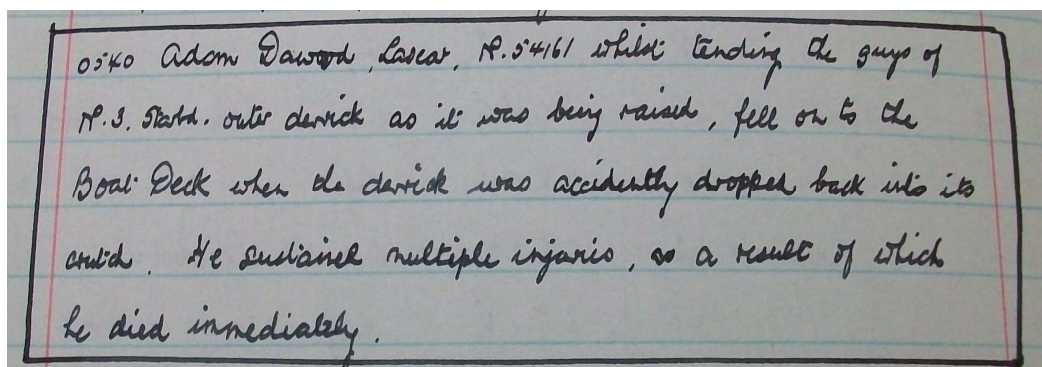 0540 Adam Dawood, Lascar, Nº.54161 whilst tending the guys of
Nº.3. Starbd. outer derrick as it was being raised, fell on to the
Boat Deck when the derrick was accidently dropped back into its
crutch. He sustained multiple injuries, as a result of which
he died immediately.